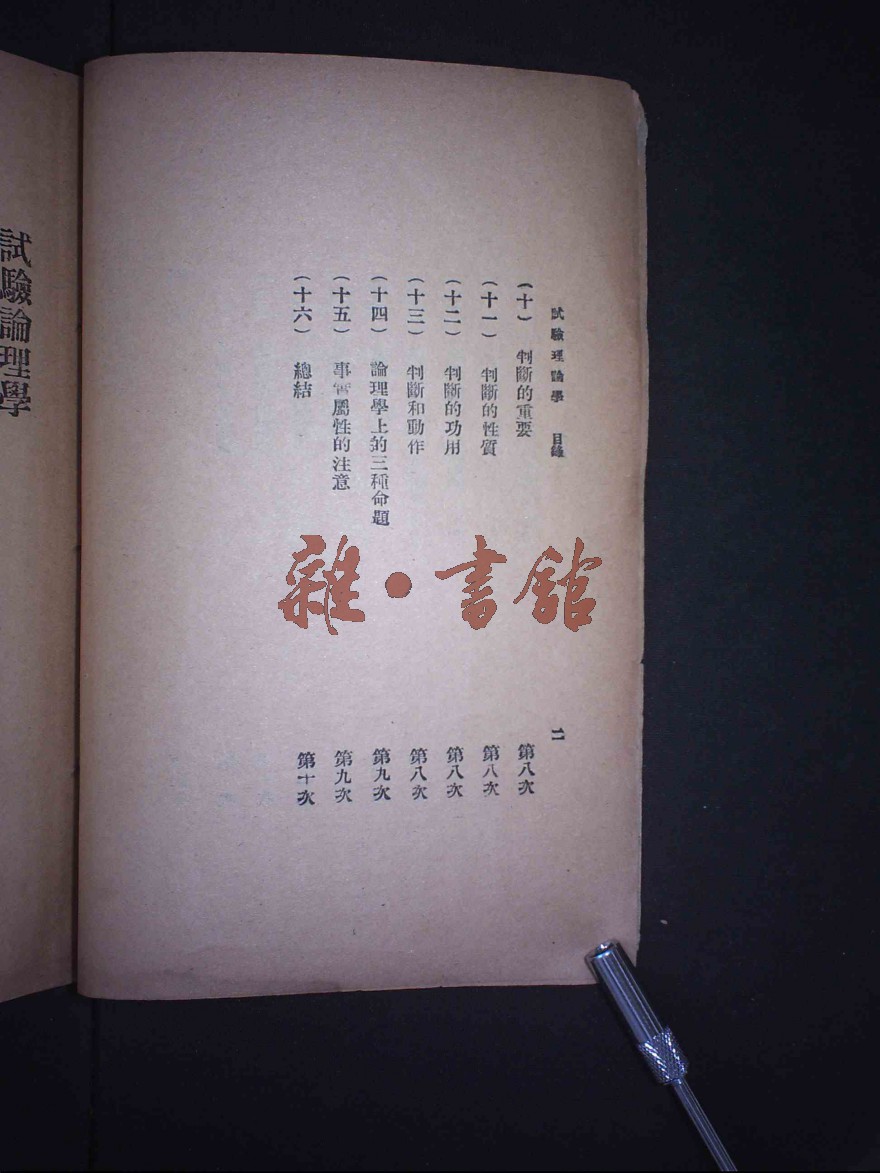 試驗理論學　目錄　二
（十）判斷的重要　第八次
（十一）判斷的性質　第八次
（十二）判斷的功用　第八次
（十三）判斷和動作　第八次
（十四）論理學上的三種命題　第九次
（十五）事實屬性的注意　第九次
（十六）總結　第十次
試驗論理學
雜·書館